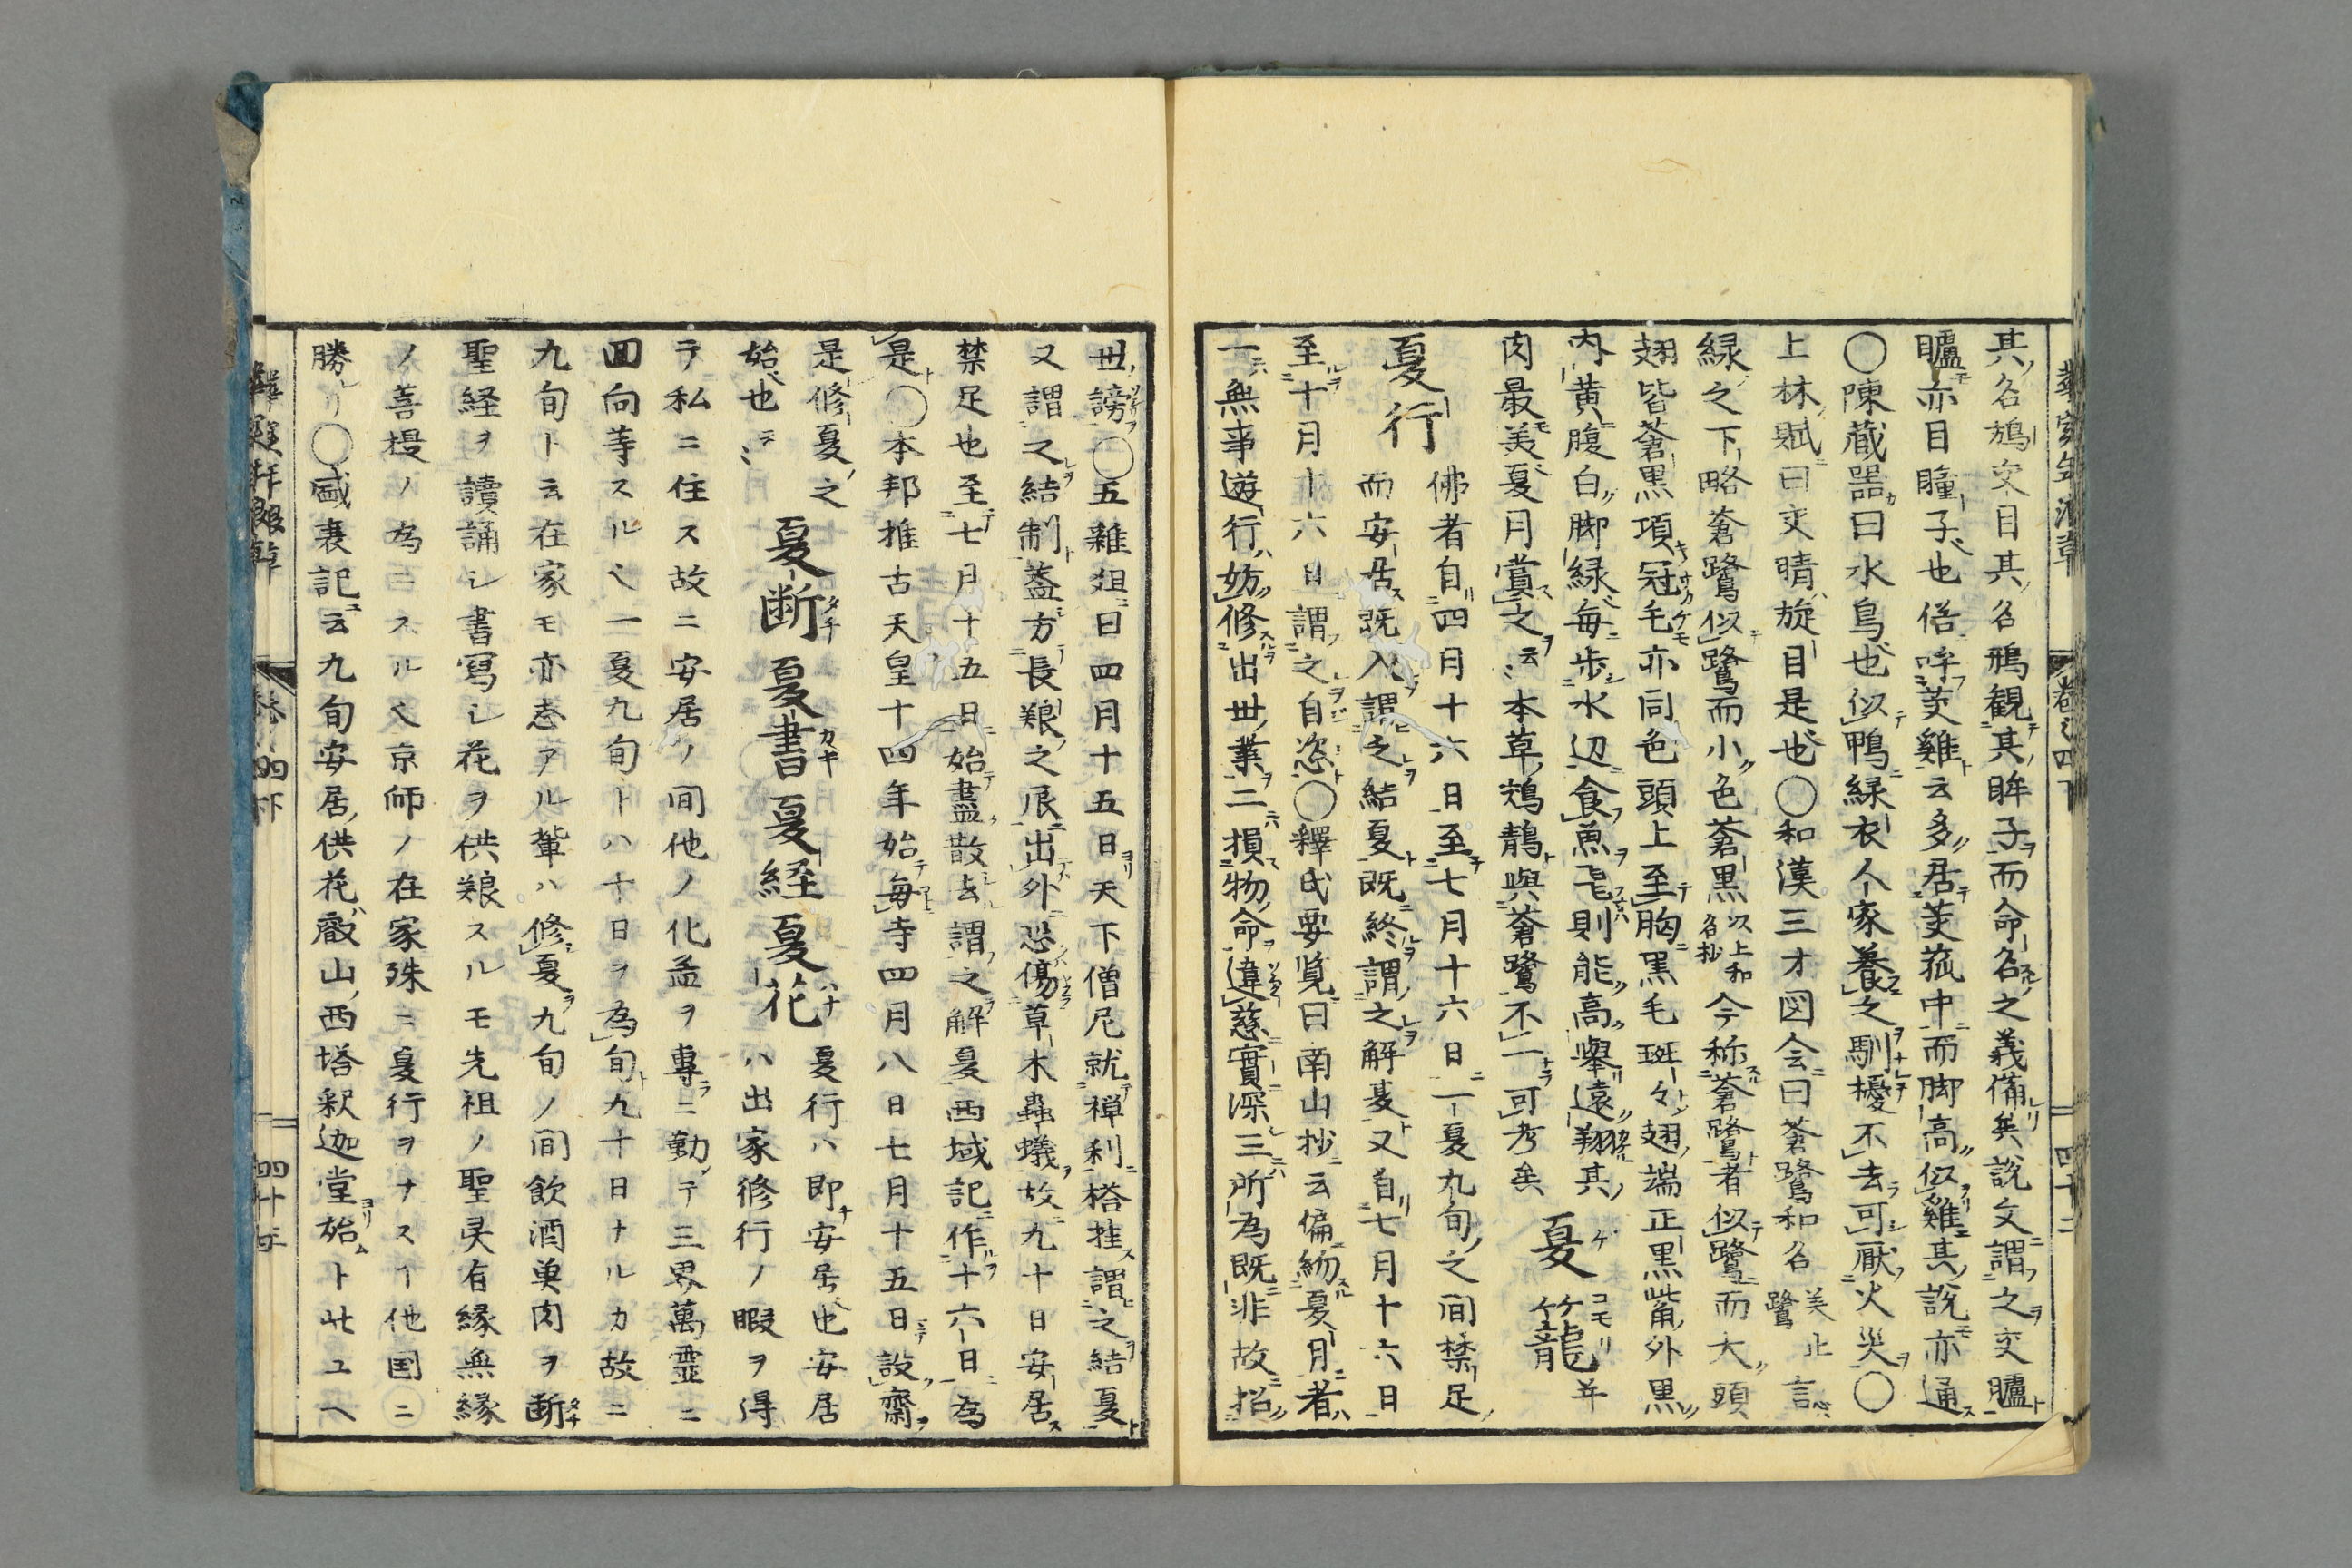 其名鳷交目其名鳽観其眸子而命名之義備矣説文謂之交臚
矑亦目瞳子也俗呼茭雞云多居茭菰中而脚高似雞其説亦通
〇陳蔵噐曰水鳥也似鴨緑衣人家養之馴擾不去可厭火災〇
上林賦曰交晴旋目是也〇和漢三才図会曰蒼鷺和名美止
緑之下略蒼鷺似鷺而小色蒼黒以上和名抄今称蒼鷺者似鷺而大頭
翅皆蒼黒項冠毛亦同色頭上至胸黒毛斑々翅端正黒觜外黒
内黄腹白脚緑毎歩水辺食魚則能高舉遠翔其
肉最美夏月賞之云々本草鵁鶄與蒼鷺不一可考矣
夏籠 ケコモリ 并
夏行
佛者自四月十六日至七月十六日一夏九旬之间禁足
而安居既入謂之結夏既終謂之解夏又自七月十六日
至十月十六日謂之自恣〇釋氏要覧曰南山抄云偏約夏月者
一無事遊行妨修出世業二損物命違慈實深三所為既非故招
世謗〇五雜俎曰四月十五日天下僧尼就禅刹搭挂謂之結夏
又謂之結制葢方長養之辰出外恐傷草木蟲蟻故九十日安居
禁足也至七月十五日始盡散去謂之解夏西域記作十六日為
是〇本邦推古天皇十四年始毎寺四月八日七月十五日設齋
是修夏之
始也云々
夏断 夏書 夏経 夏花
夏行ハ即安居也安居
ハ出家修行ノ暇ヲ得
テ私ニ住ス故ニ安居ノ间他ノ化益ヲ專ニ勤テ三界萬霊ニ
回向等スルヘ一夏九旬トハ十日ヲ為旬九十日ナルカ故ニ
九旬ト云在家モ亦志アル輩ハ修夏九旬ノ间飲酒魚肉ヲ断
聖経ヲ讀誦シ書寫シ花ヲ供養スルモ先祖ノ聖灵有縁無縁
ノ善提ノ為ニスル也京師ノ在家殊ニ夏行ヲナスヿ他国ニ
勝レリ〇盛衰記云九旬安居供花叡山西塔釈迦堂始ト此ユヘ
巻之四下
四十二